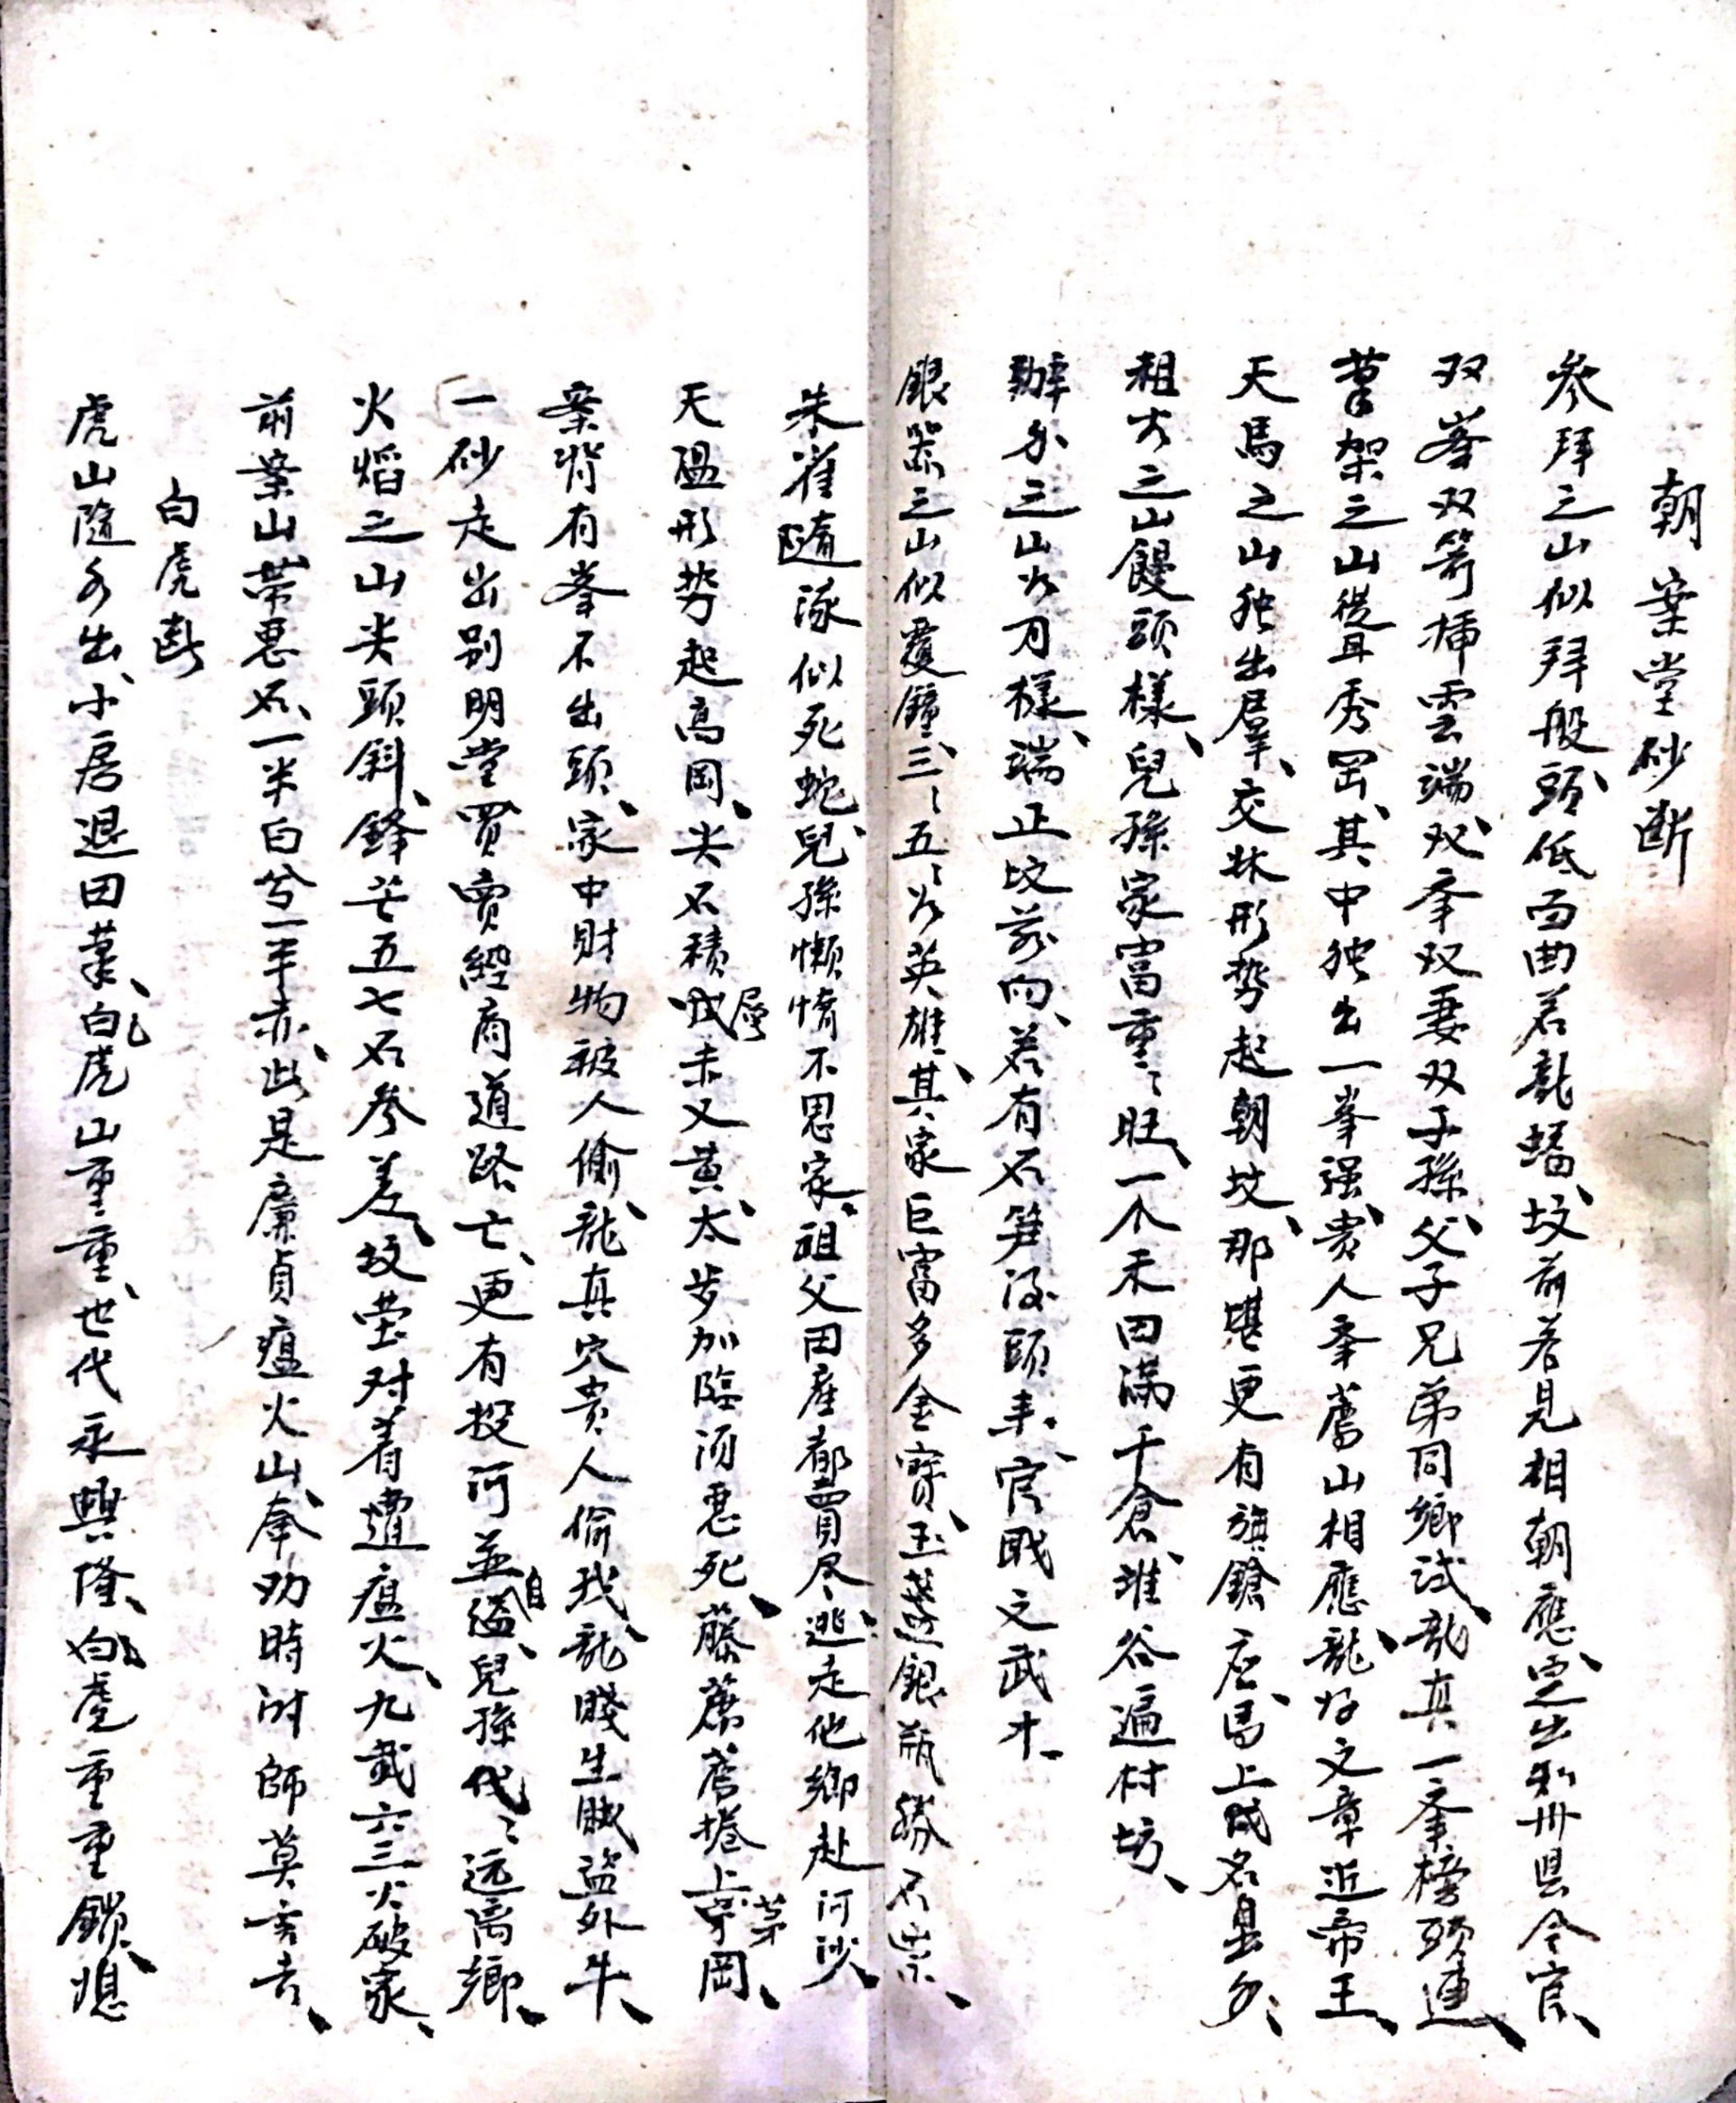 朝案堂砂断
参拜之山似拜般、頭低面曲若龍蟠、坟前若見相朝應、定出知州県令官、
双峯双笋揷雲端、双峯双妻双子孫、父子兄弟同鄉試、龍真一峯榜頭連、
筆架之山從耳秀罡、其中独出一峯强、貴人峯舊山相應、龍好文章近帝王、
天馬之山独出羣、交牀形势起朝坟、那堪更有旗鎗应、馬上成名县分、
祖方之山饅頭樣、兒孫家富重〻旺、一个禾田滿千倉、堆谷遍村坊、
辦分之山为刀樣、端正坟前向、若有石笋後頭丰、官職文武才、
銀器之山似覆鐘、三〻五〻为英雄、其家巨富多金寶、玉盞銀瓶勝石崇、
朱雀隨流似死蛇、兒孫懶惰不思家、祖父田産都賣尽、逃走他鄉赴河沙、
天瘟形势起高岡、尖石積成屬赤又黄、太歩加臨須惡死、藤蓆捲上茅岡、
案背有峯不出頭、家中財物被人偷、龍真穴貴人偷我、龍賤生賊盜外牛、
一砂走出別明堂、買賣經商道路亡、更有投河並自縊、兒孫代〻远离鄉、
火熖之山尖頭斜、鋒芒五七石参差、坟茔对着遭瘟火、九弐六三火破家、
前案山帯惡石、一半白兮一半赤、此是廉貞瘟火山、奉劝時師莫言吉、
白虎断
虎山隨水出、小房退田業、白虎山重重、世代永興隆、白虎重重鎖、媳